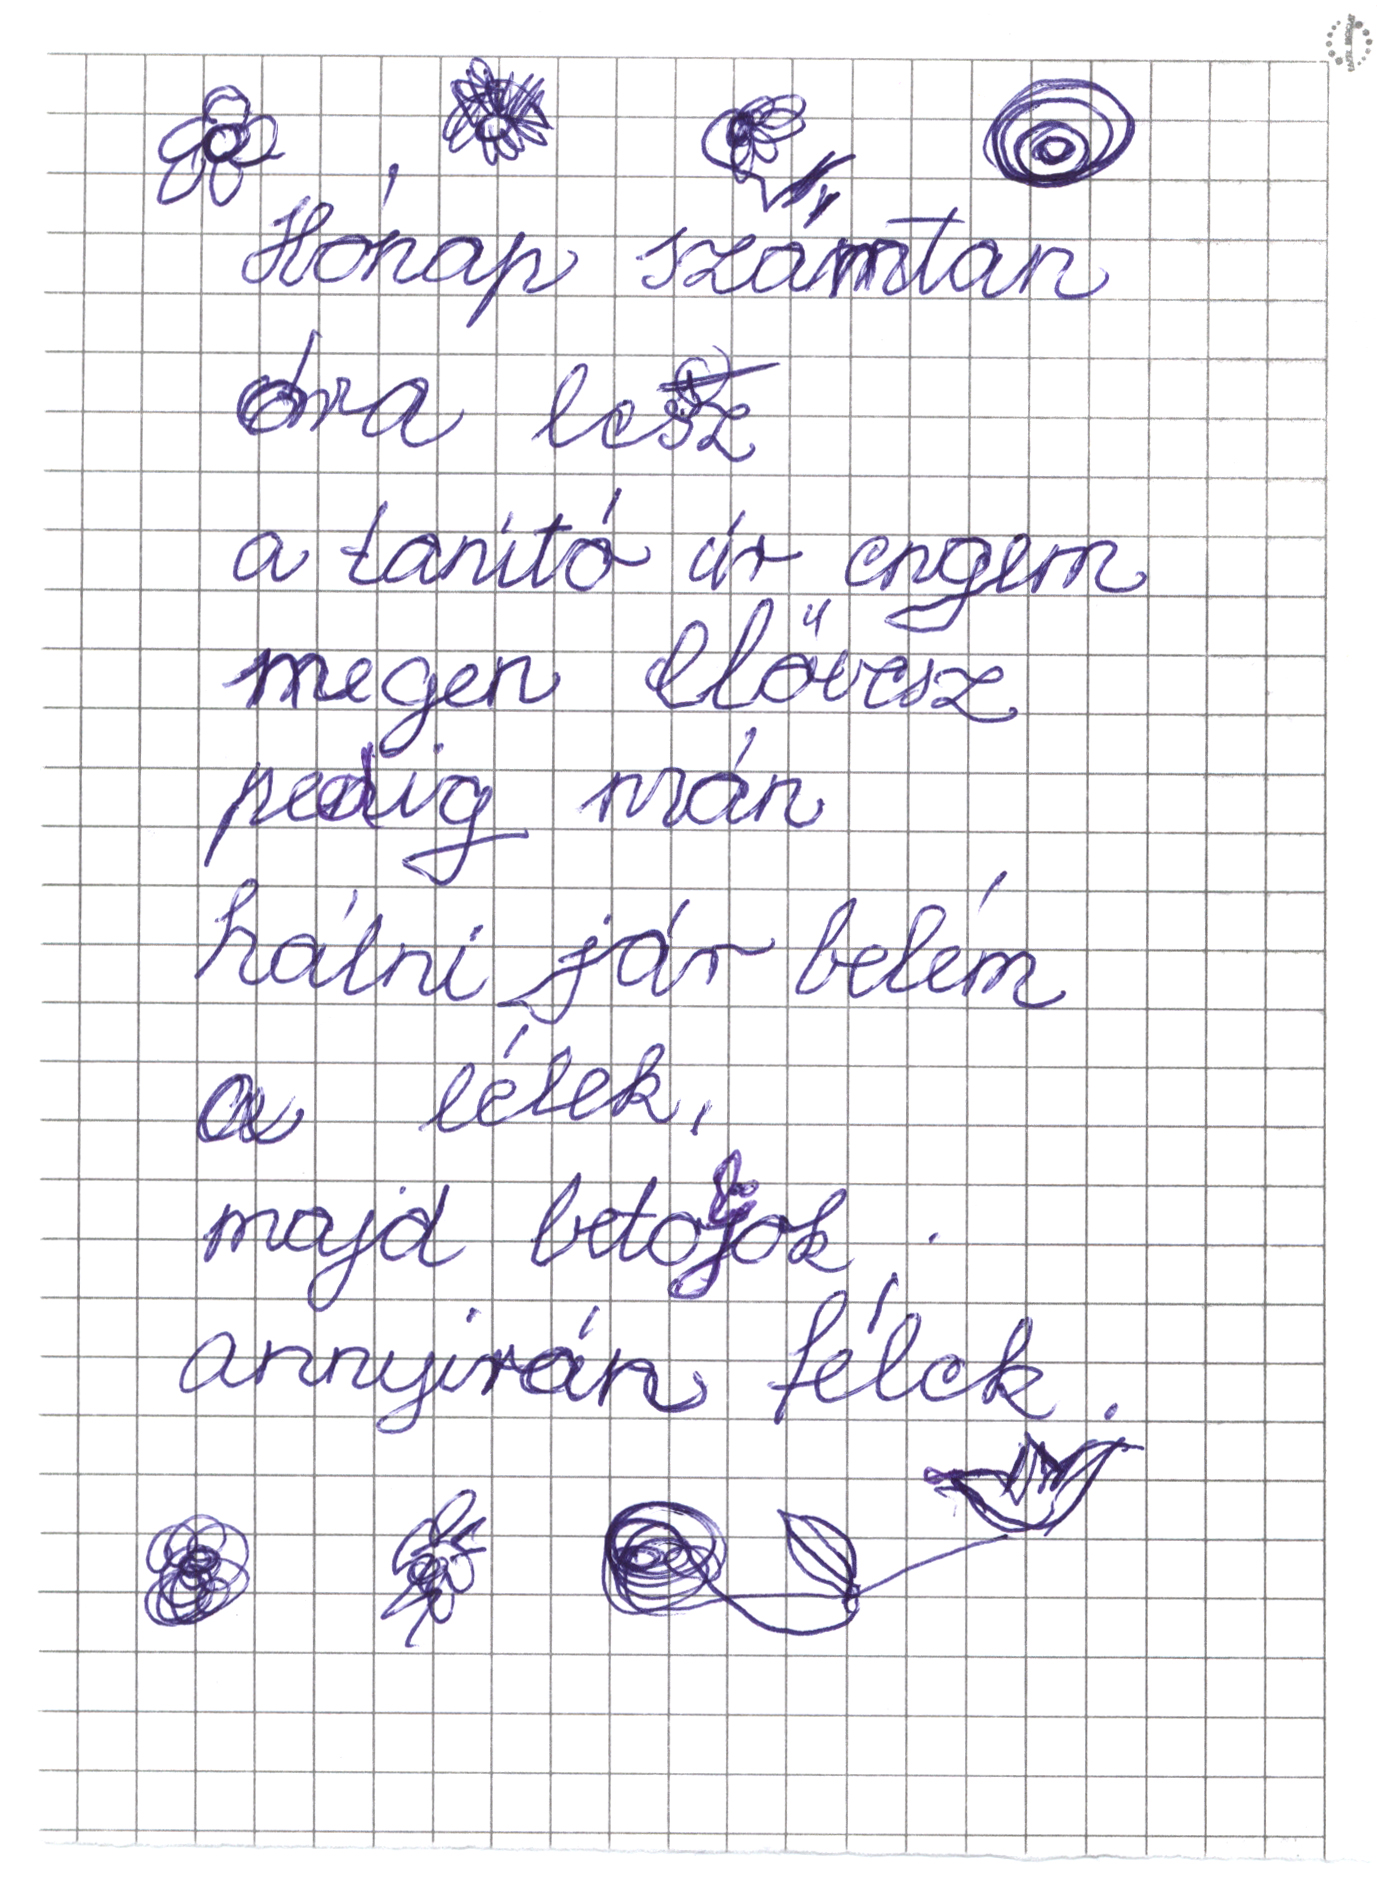 Hónap számtan
óra lesz
a tanító úr engem
megen elővesz
pedig mán
hálni jár belém
a lélek,
majd betojok
annyirán félek.